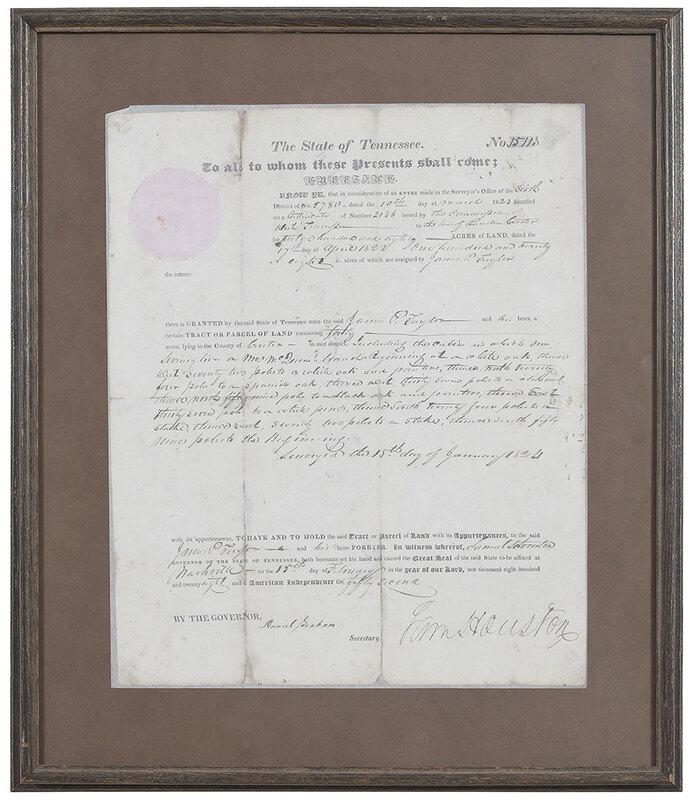 The State of Tennessee. No. 15113
To all to whom these Presents shall come;
GREETING.
KNOW YE, that in consideration of an ENTRY made in the Surveyor's Office of the Sixth
District of No. 5780 dated the 10th day of March 1823 founded
on a Certificate of Number 2136 issued by the Commissioner
West Tennessee to the heirs of Landon Carter
for Forty hundred and eighty ACRES OF LAND, dated the
day of April 1822 One hundred and twenty
acres of which are assigned to James P. Taylor
the enterer.
there is GRANTED by the said State of Tennessee unto the said James P. Taylor and his heirs, a
certain TRACT OR PARCEL OF LAND containing forty
acres, lying in the County of Carter in said district Including the cabin in which
lives on Beginning at a white oak thence
West Seventy two poles to a white oak and pointers, thence North twenty
four poles to a spanish oak thence West thirty seven poles to a chesnut
thence north fifty nine poles to a black oak and pointers, thence East
thirty seven poles to a white pine, thence South twenty four poles to a
stake, thence East, Seventy two poles to a stake, thence South fifty
nine poles to the Beginning.
Surveyed the 15th day of January 1824
with its appurtenances, TO HAVE AND TO HOLD the said Tract or Parcel of Land with its Appurtenances, to the said
James P. Taylor and his heirs FOREVER. In witness whereof, Samuel Houston
GOVERNOR OF THE STATE OF TENNESSEE, hath hereunto set his hand and caused the Great Seal of the said State to be affixed at
Nashville on the 15th day of February in the year of our Lord, one thousand eight hundred
and twenty eight and of American Independence the fifty second
BY THE GOVERNOR,
Daniel Graham
Secretary.
Sam Houston